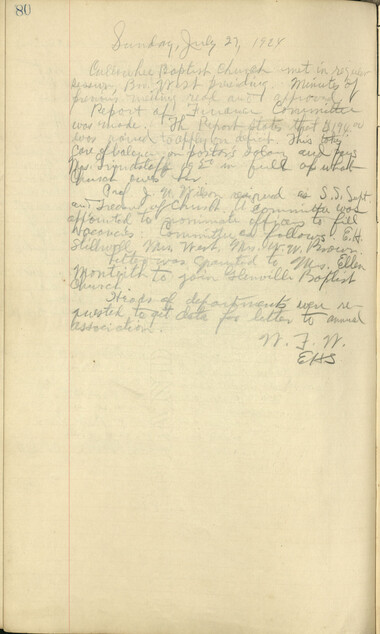 80
Sunday, July 27, 1924
Cullowhee Baptist Church met in regular
session, Bro. West presiding. Minutes of
previous meeting read and approved.
Report of Finance Committee
was made. The Report states that $194.
was raised to apply on deficit. This
care of balance on pastor's salary and pays
Mrs. in full of what
church owes her.
Prof. J. N. Wilson resigned as S.S. Supt.
and Treas. of Church. A committee was
appointed to nominate officers to fill
vacancies. Committee as follows: E.H.
Stillwell, Mrs. West, Mrs. W.W. Brown
Letter was granted to Mrs. Ellen
Monteith to join Glenville Baptist
Church.
Heads of departments were re-
quested to get data for letter to annual
association.
W. F. W.
EHS